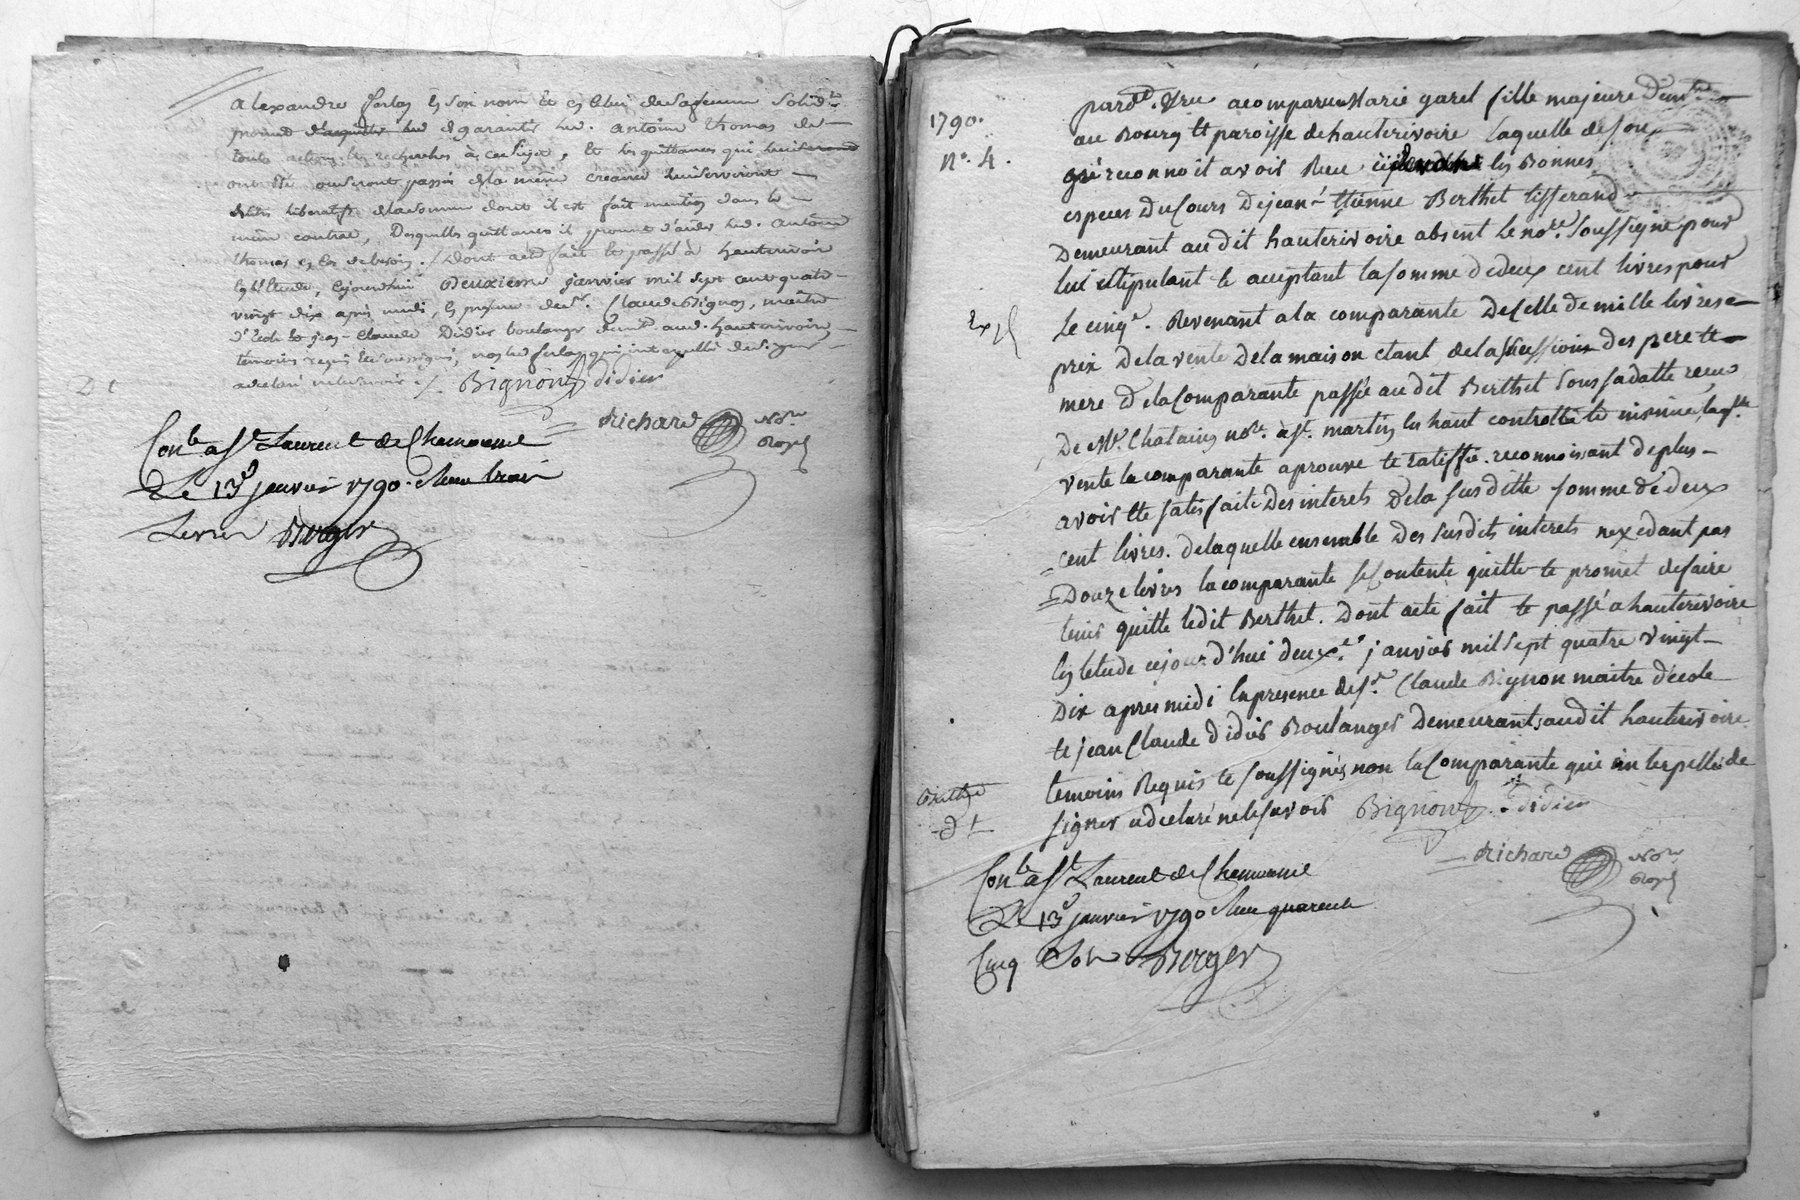 Alexandre forlay en son nom et en celui de sa femme solid.te
promet d'acquitter led. et garantir led. Antoine thomas de
toute action et recherches à ce sujet, et les quittances qui
ont été ou seront passées de la même creance lui serviront
de la somme dont il est fait mention dans le
même contrat, desquelles quittances il promet d'aider led. antoine
thomas en cas de besoin. / Dont acte fait et passé à hauterivoire
en l'etude, cejourdhui deuxieme janvier mil sept cent quatre
vingt dix après midi, en presence de sr. Claude Bignon, maître
d'ecole et jean-Claude Didier boulanger demt. aud. hauterivoire
temoins requis et soussignés, non led. forlay qui interpellé de signer
a declaré ne le savoir ./. Bignon didier
D t
Richard No.re
Royal
Con.lé a St. Laurent de Chamousset
Le 13e janvier 1790. Reçu trois
Livres Berger
1790.
N°. 4.
pard.t. Etre a comparu Marie garel fille majeure demt.
au Bourg et paroisse de hauterivoire laquelle de son
gré reconnoit avoir Reçu les Bonnes
especes du Cours de jean-étienne Berthet tisserand
Demeurant au dit hauterivoire absent le no.re soussigné pour
lui stipulant et acceptant la somme de deux cent livres pour
Exp
Le cinq.e Revenant a la comparante De Celle de mille livres
prix De la vente De la maison etant de la succession des pere et
mere De la Comparante passée au dit Berthet sous sa datte reçue
De Me. Chatain no.re à St. martin en haut controllé et insinué laq.lle
vente la comparante aprouve et ratiffie. reconnoissant de plus
avoir été satisfaite Des interets De la susditte somme de deux
cent livres. de laquelle ensemble Des susdits interets n'exedant pas
Douze livres la comparante se Contente quitte et promet de faire
tenir quitte ledit Berthet. Dont acte fait et passé a hauterivoire
en l'etude cejour d'hui deux.e janvier mil sept quatre vingt
Dix apres midi en presence de sr. Claude Bignon maitre d'école
et jean Claude didier Boulanger Demeurants audit hauterivoire
temoins Requis et soussignés non la Comparante qui interpellée de
signer a declaré ne le savoir Bignon didier
D t
Richard No.re
Royal
Con.lé a St. Laurent de Chamousset
Le 13e janvier 1790 Reçu quarente
Cinq Sols Berger